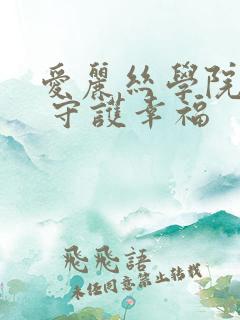 愛麗絲學院
守護幸福
飛飛語
未經同意禁止轉載